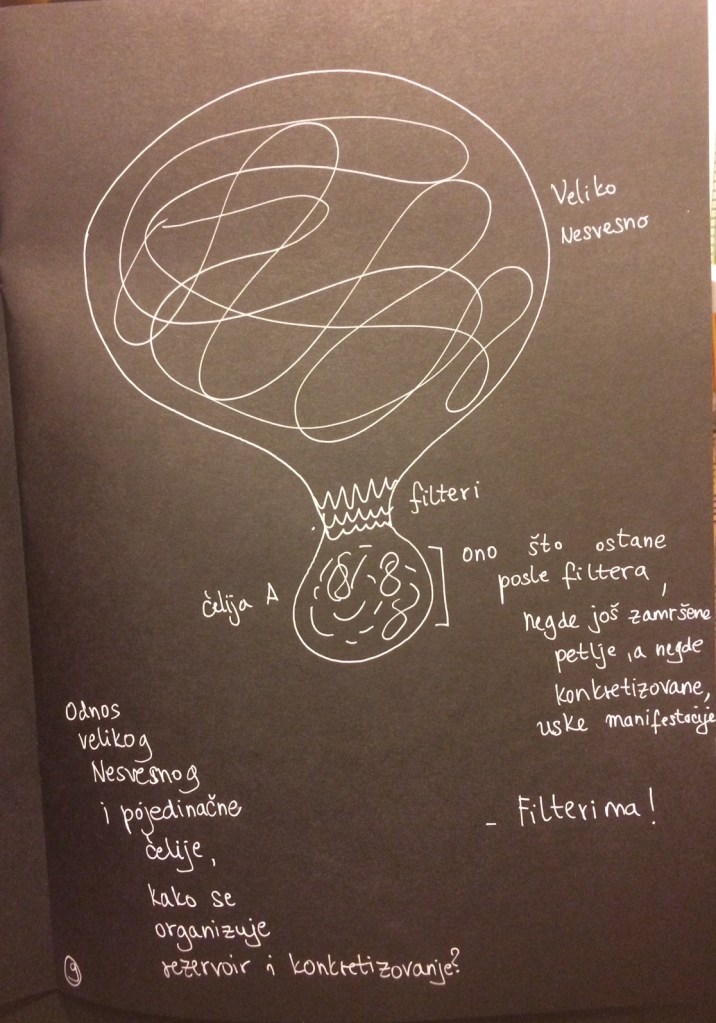 Veliko
Nesvesno
filteri
ono što ostane
posle filtera,
negde još zamršene
petlje, a negde
konkretizovane,
uske manifestacije
ćelija A
Odnos
velikog
Nesvesnog
i pojedinačne
ćelije,
kako se
organizuje
rezervoir i konkretizovanje?
- Filterima!
9